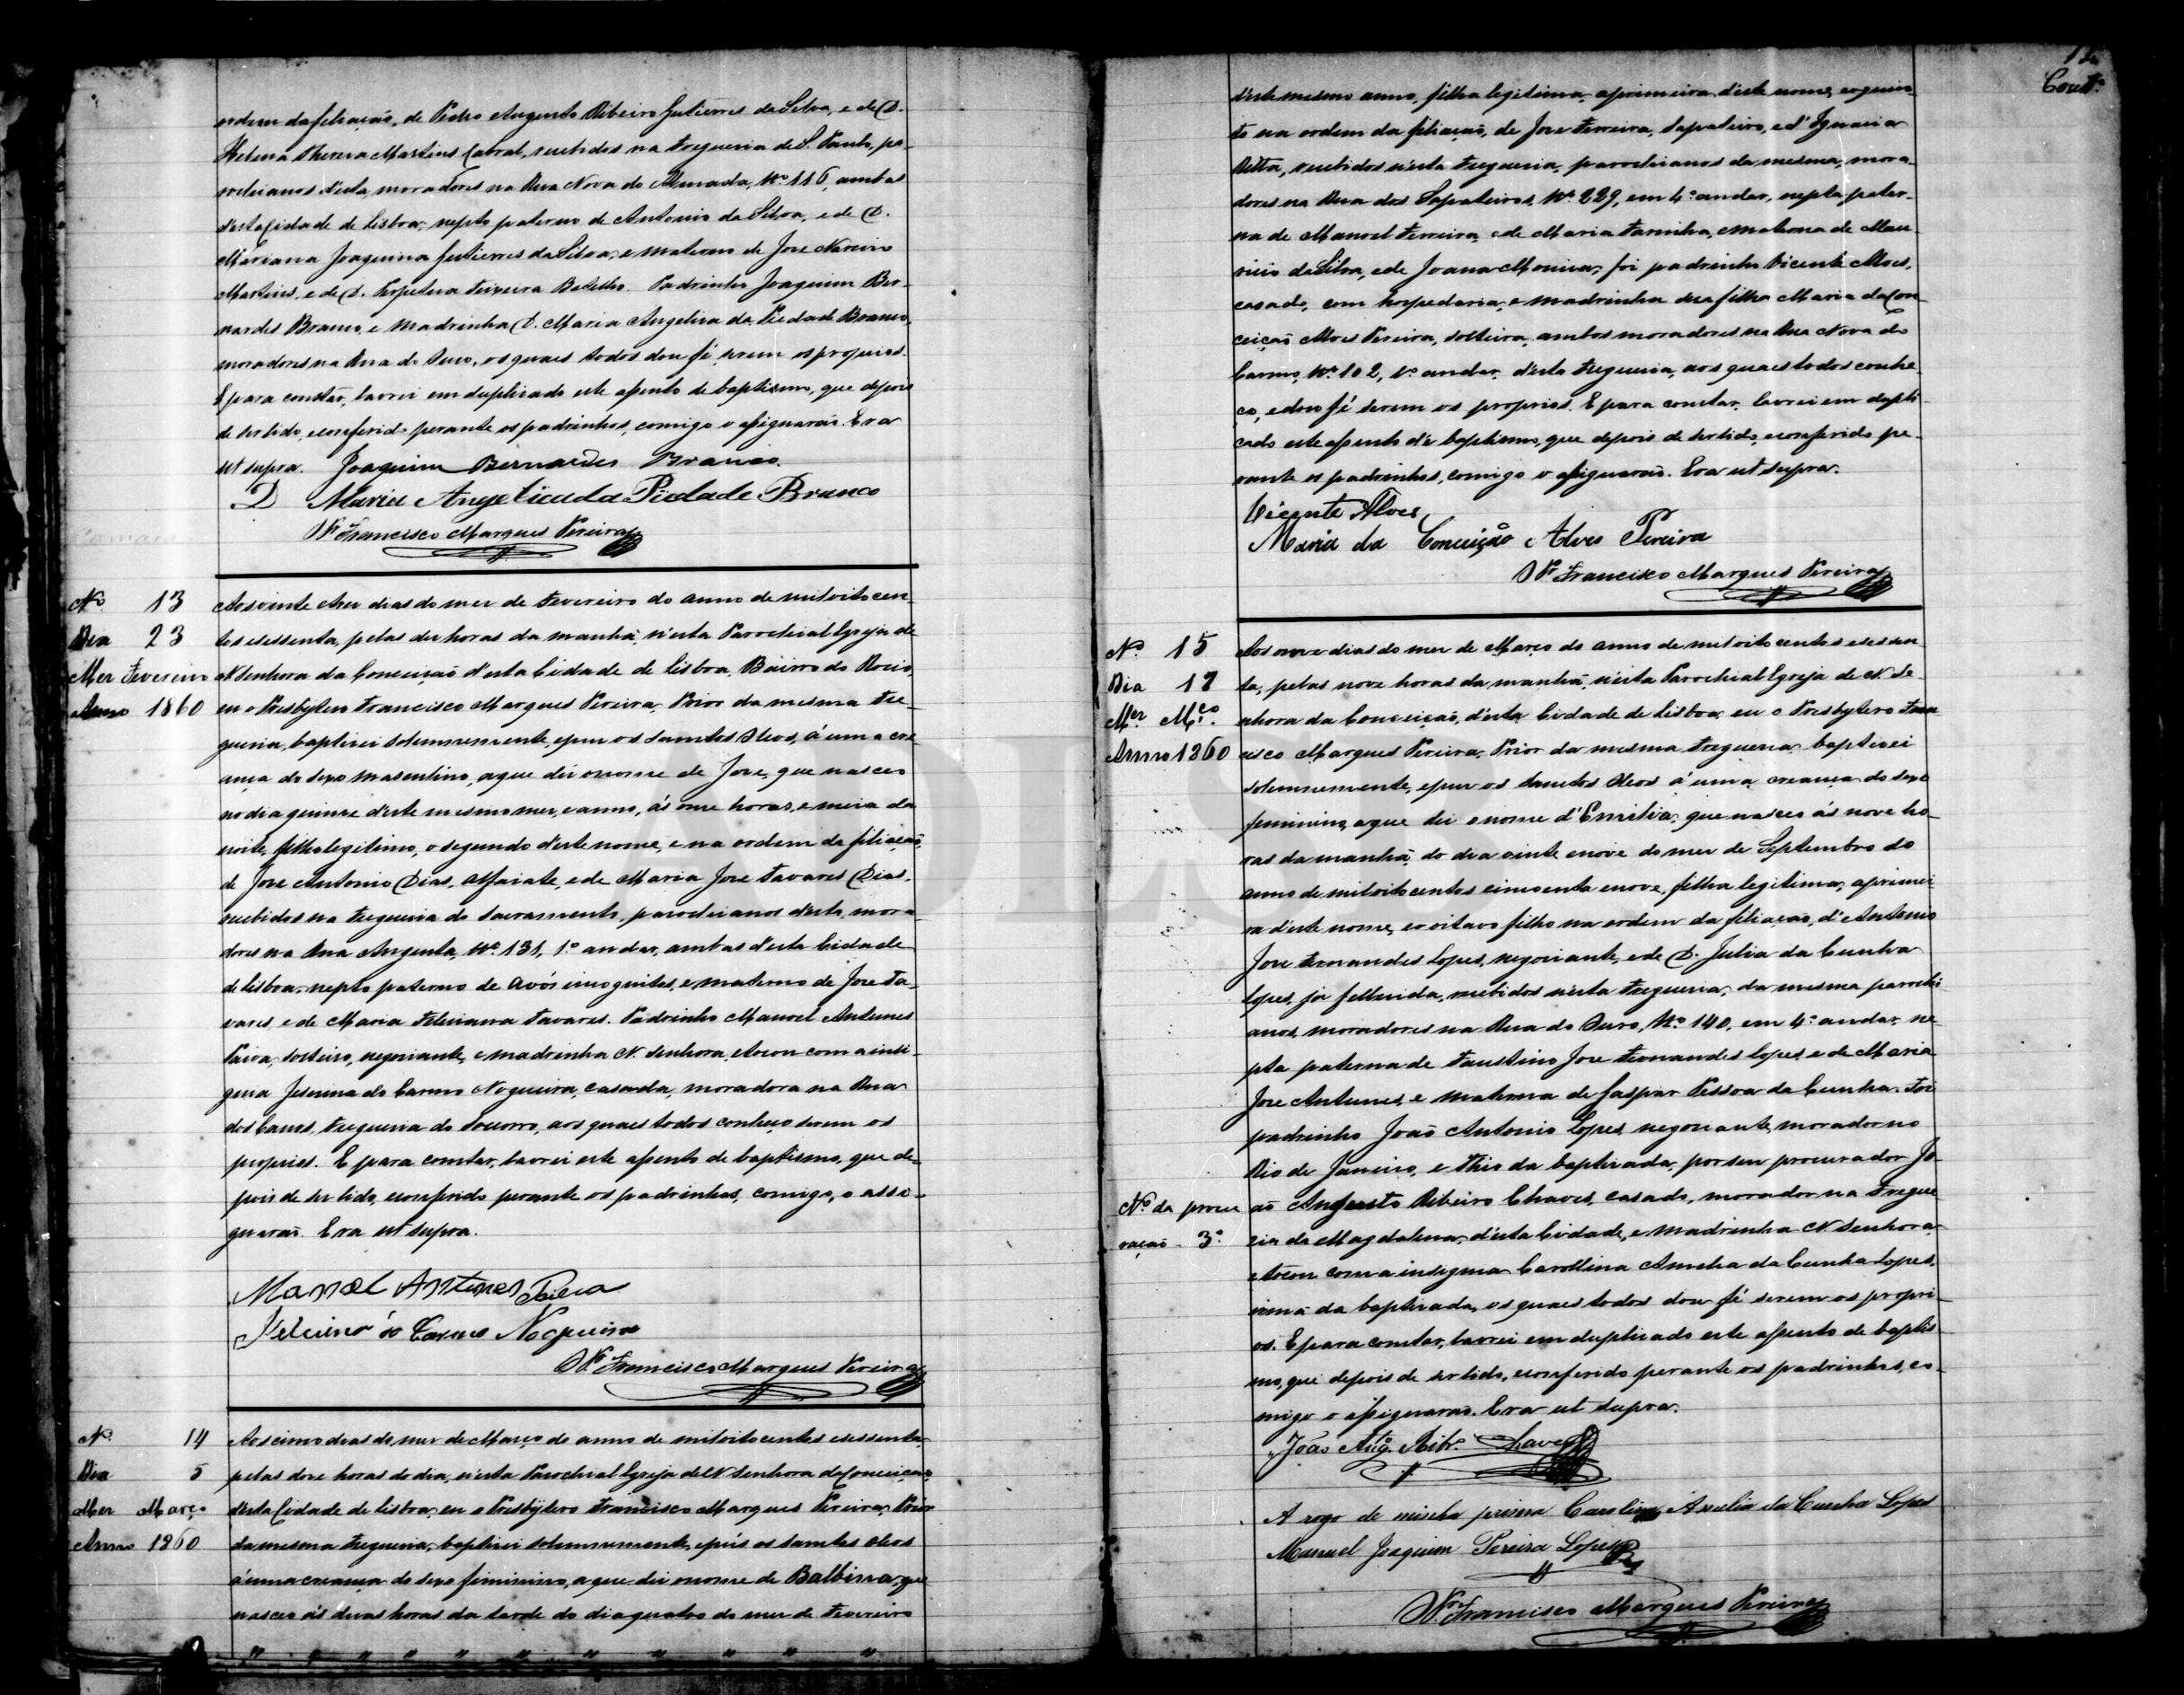 ordem da filiação, de Pedro Augusto Ribeiro Gutierres da Silva, e de D.
Helena Thereza Martins Cabral, recebidos na freguezia de S. Paulo, pa-
rochianos d'esta, moradores na Rua Nova do Almada, Nº 116, ambas
d'esta Cidade de Lisboa, nepto paterno de Antonio da Silva, e de D.
Marianna Joaquina Gutierres da Silva, e materno de Jose Narciso
Martins, e de D. Perpetua Teixeira Botelho. Padrinho Joaquim Ber-
nardes Branco, e Madrinha D. Maria Angelica da Piedade Branco,
moradores na Rua do Ouro, os quaes todos dou fé serem os proprios.
E para constar, lavrei em duplicado este assento de baptismo, que depois
de ser lido, e conferido perante os padrinhos, comigo o assignarão. Era
ut supra. Joaquim Bernardes Branco.
D Maria Angelica da Piedade Branco
Pr Francisco Marques Pereira
Nº 13
Dia 23
Mez Fevereiro
Anno 1860
Aos vinte e trez dias do mez de Fevereiro do anno de mil oito cen-
tos e sessenta, pelas dez horas da manhã, n'esta Parochial Igreja de
N. Senhora da Conceição d'esta Cidade de Lisboa, Bairro do Rocio,
eu o Presbytero Francisco Marques Pereira, Prior da mesma Fre-
guezia, baptizei solemnemente, e puz os Santos Oleos, á uma cre-
ança do sexo masculino, a que dei o nome de Jose, que nasceo
no dia quinze d'este mesmo mez, e anno, ás onze horas, e meia da
noite, filho legitimo, o segundo d'este nome, e na ordem da filiação,
de Jose Antonio Dias, Alfaiate, e de Maria Jose Tavares Dias,
recebidos na freguezia do Sacramento, parochianos d'esta, mora
dores na Rua Augusta, Nº 131, 1º andar, ambas d'esta Cidade
de Lisboa, nepto paterno de avós incognitos, e materno de Jose Ta-
vares, e de Maria Feliciana Tavares. Padrinho Manoel Antunes
Paiva, solteiro, negociante, e madrinha N. Senhora, e tocou com a insi-
gnia Jesuina do Carmo Nogueira, casada, moradora na Rua
dos Canos, Freguezia do Soccorro, aos quaes todos conheço serem os
proprios. E para constar, lavrei este assento de baptismo, que de-
pois de ser lido, e conferido perante os padrinhos, comigo, o assi-
gnarão. Era ut supra.
Manoel Antunes Paiva
Jesuina do Carmo Nogueira
Pr Francisco Marques Pereira
Nº 14
Dia 5
Mez Março
Anno 1860
Aos cinco dias do mez de Março do anno de mil oito centos e sessenta,
pelas doze horas do dia, n'esta Parochial Igreja de N. Senhora da Conceição,
d'esta Cidade de Lisboa, eu o Presbytero Francisco Marques Pereira, Prior
da mesma Freguezia, baptizei solemnemente, e puz os Santos oleos
á uma creança do sexo feminino, a que dei o nome de Balbina, que
nasceo ás duas horas da tarde do dia quatro do mez de Fevereiro
" " " " " " " " " " "
12
d'este mesmo anno, filha legitima, a primeira d'este nome, e o quin-
to na ordem da filiação, de Jose Ferreira, Sapateiro, e d'Ignacia
Ritta, recebidos n'esta Freguezia, parochianos da mesma, mora-
dores na Rua dos Sapateiros, Nº 229, em 4º andar, nepta pater-
na de Manoel Ferreira, e de Maria Farinha, e materna de Mau-
ricio da Silva, e de Joana Monica; foi padrinho Vicente Alves,
casado, com hospedaria, e madrinha sua filha Maria da Con-
ceição Alves Pereira, solteira, ambos moradores na Rua Nova do
Carmo, Nº 102, 1º andar, d'esta freguezia, aos quaes todos conhe-
ço, e dou fé serem os proprios. E para constar, lavrei em dupli-
cado este assento de baptismo, que depois de ser lido, e conferido pe-
rante os padrinhos, comigo o assignarão. Era ut supra.
Vicente Alves
Maria da Conceição Alves Pereira
Pr Francisco Marques Pereira
Nº 15
Dia
Mez Mço.
Anno 1860
Aos onze dias do mez de Março do anno de mil oito centos e sessen
ta, pelas nove horas da manhã, n'esta Parochial Igreja de N. Se-
nhora da Conceição, d'esta Cidade de Lisboa, eu o Presbytero Fran
cisco Marques Pereira, Prior da mesma Freguezia, baptizei
solemnemente, e puz os Sanctos Oleos á uma creança do sexo
feminino, a que dei o nome d'Emilia, que nasceo ás nove ho-
ras da manhã do dia vinte e nove do mez de Septembro do
anno de mil oito centos cincoenta e nove, filha legitima, a primei
ra d'este nome, e o oitavo filho na ordem da filiação, d'Antonio
Jose Fernandes Lopes, negociante, e de D. Julia da Cunha
Lopes, ja fallecida, recebidos n'esta Freguezia, da mesma parochi
anos, moradores na Rua do Ouro, Nº 140, em 4º andar, ne
pta paterna de Faustino Jose Fernandes Lopes, e de Maria
Jose Antunes, e materna de Gaspar Pessoa da Cunha. Foi
padrinho João Antonio Lopes, negociante, morador no
Rio de Janeiro, e thio da baptizada, por seu procurador Jo-
Nº da procu
ração 3º
ão Augusto Ribeiro Chaves, casado, morador na Fregue
zia da Magdalena, d'esta Cidade, e madrinha N. Senhora,
e tocou com a insignia Carollina Amelia da Cunha Lopes,
irmã da baptizada, os quaes todos dou fé serem os propri-
os. E para constar, lavrei em duplicado este assento de baptis
mo, que depois de ser lido, e conferido perante os padrinhos, co-
migo o assignarão. Era ut supra.
João Augº. Ribr. Chaves
A rogo de minha prima Carolina Amelia da Cunha Lopes
Manuel Joaquim Pereira Lopes
Pr Francisco Marques Pereira